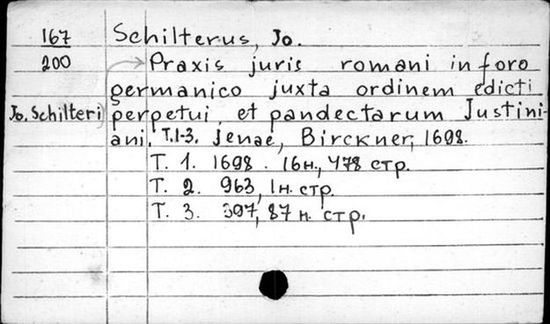 167 Schilterus, Jo.
200 Praxis juris romani in foro
germanico juxta ordinem edicti
Jo. Schilteri perpetui, et pandectarum Justini-
ani. T.1-3. Jenae, Birckner, 1698.
T. 1. 1698. 16н., 478 стр.
T. 2. 963, 1н. стр.
T. 3. 397, 87 н. стр.